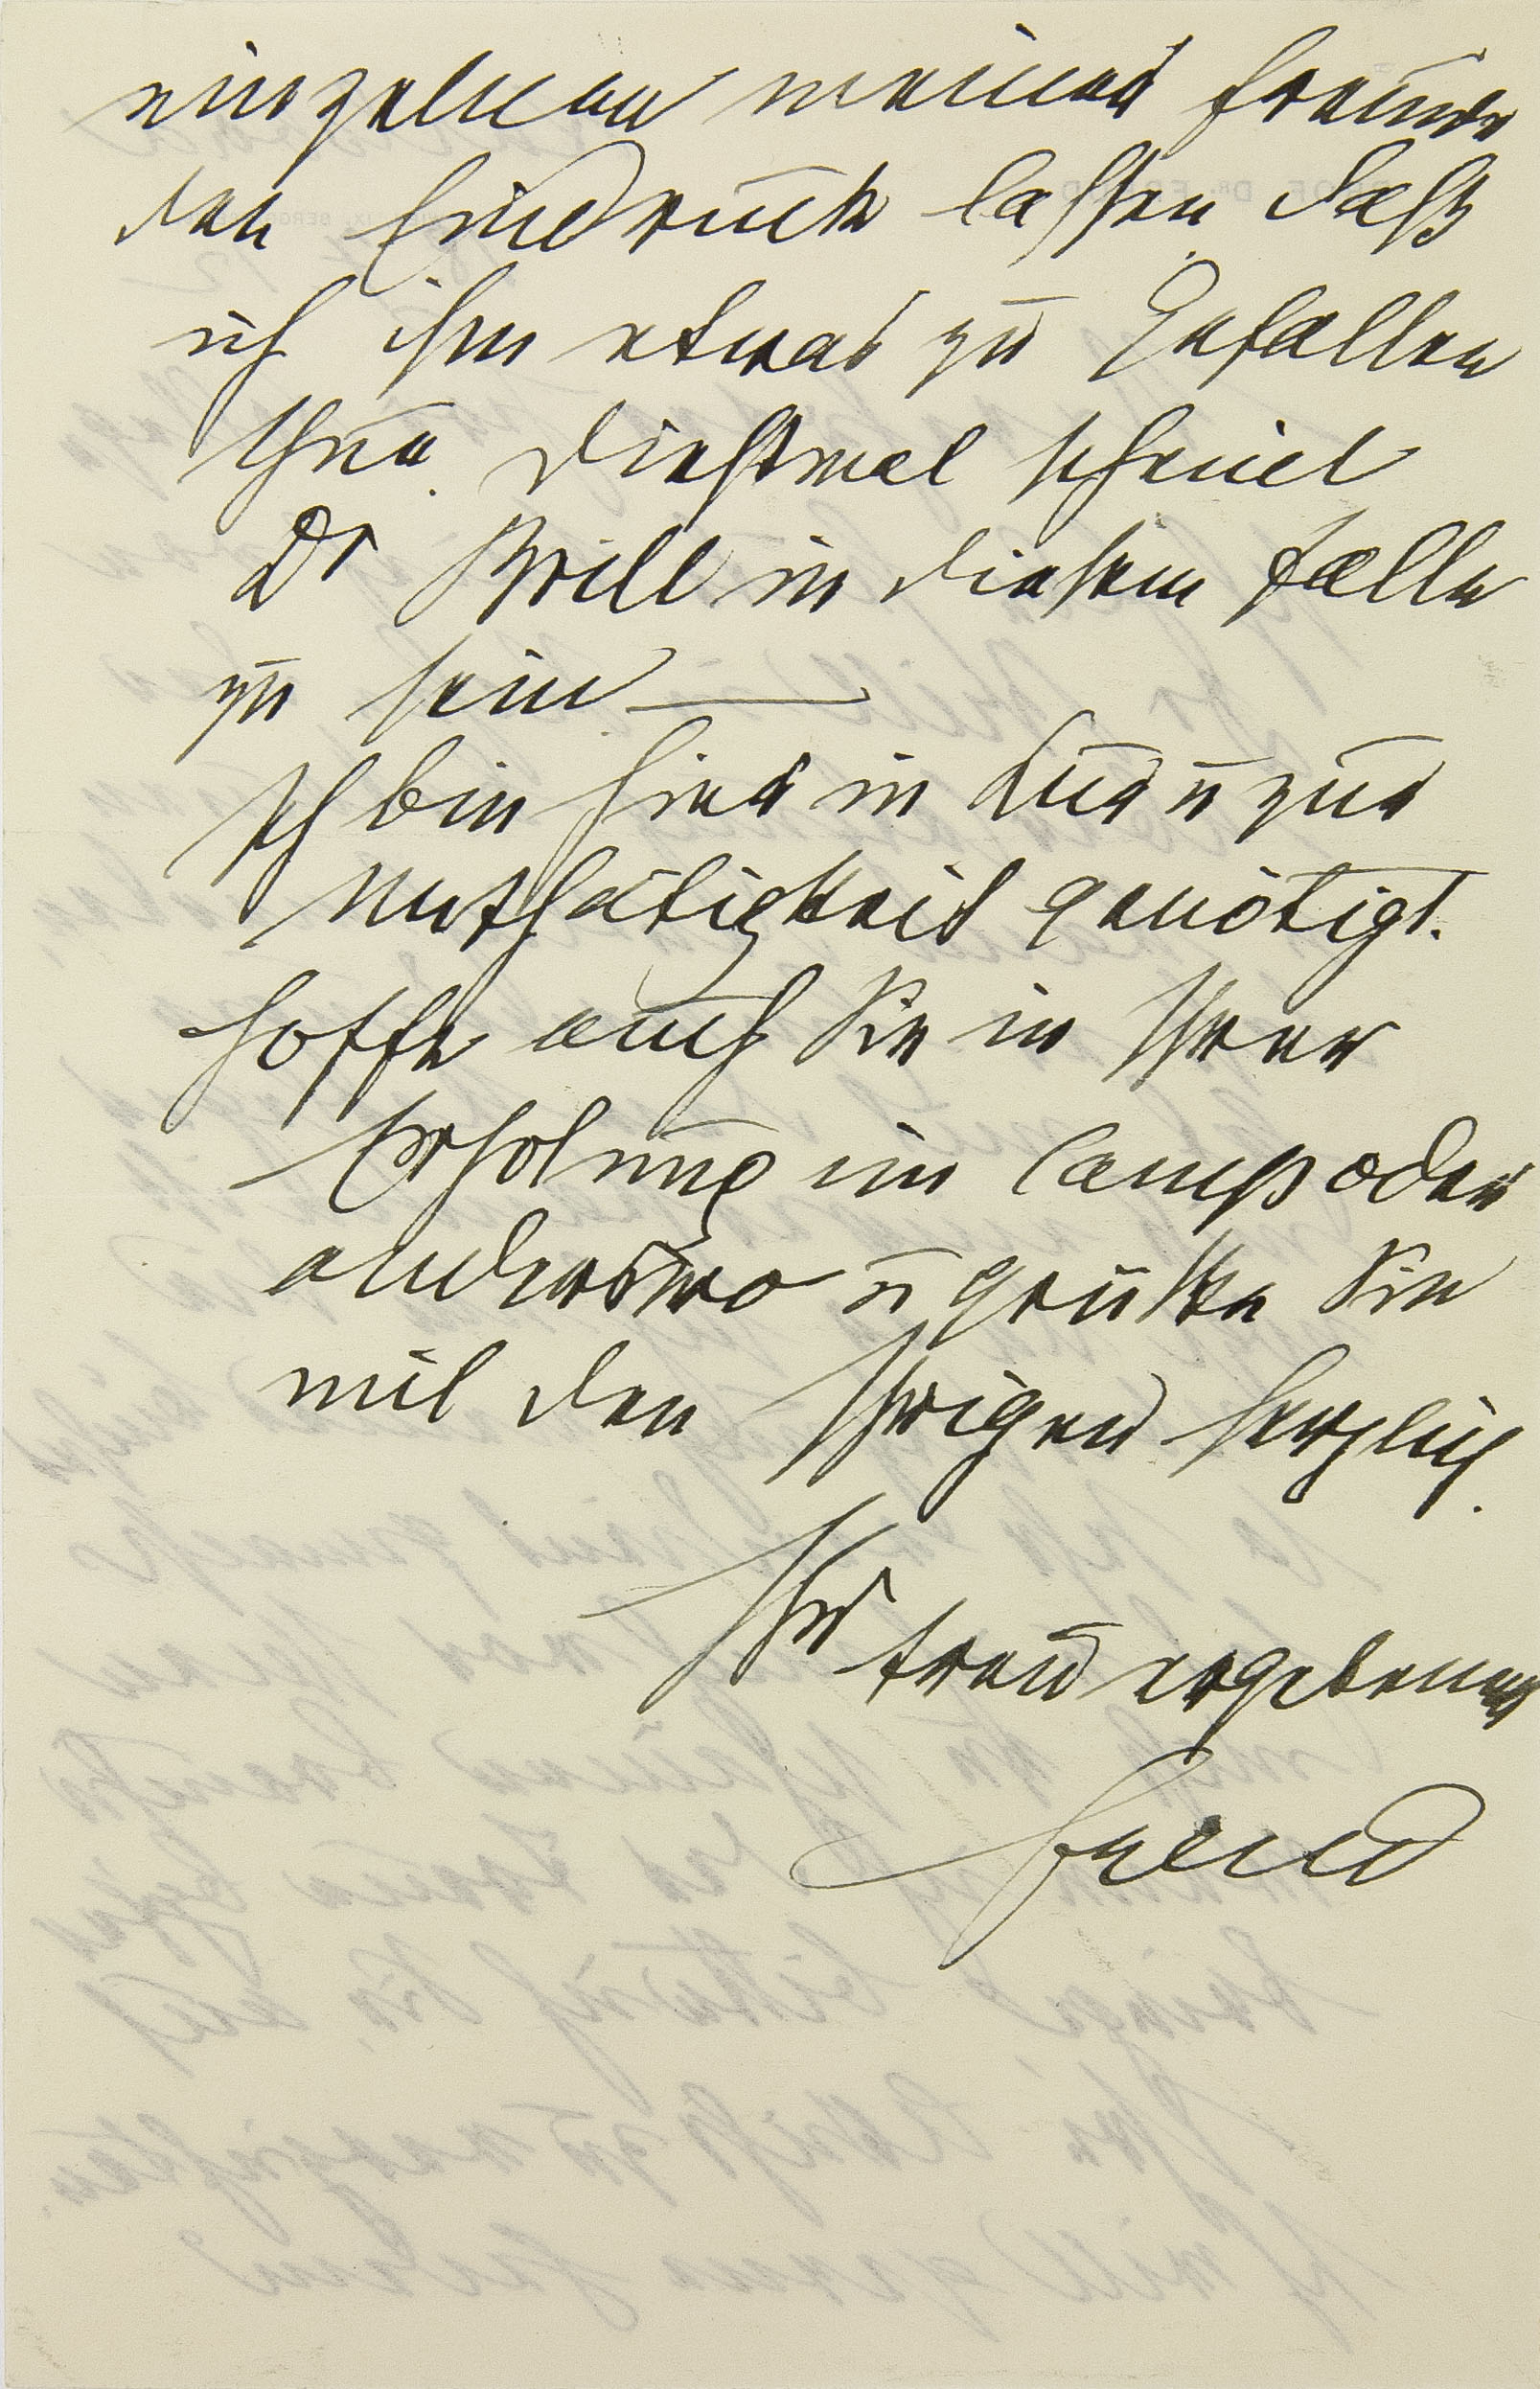 einzelnen meiner Freunde
den Eindruck lassen daß
ich ihm etwas zu Gefallen
thue. Dießmal scheint
Dr Brill in diesem Falle
zu sein —
Ich bin hier in Kur u zur
Unthätigkeit genötigt.
hoffe auch Sie in Ihrer
Erholung im Camp oder
anderswo u grüße Sie
mit den Ihrigen herzlich.
Ihr
treu ergebener
Freud